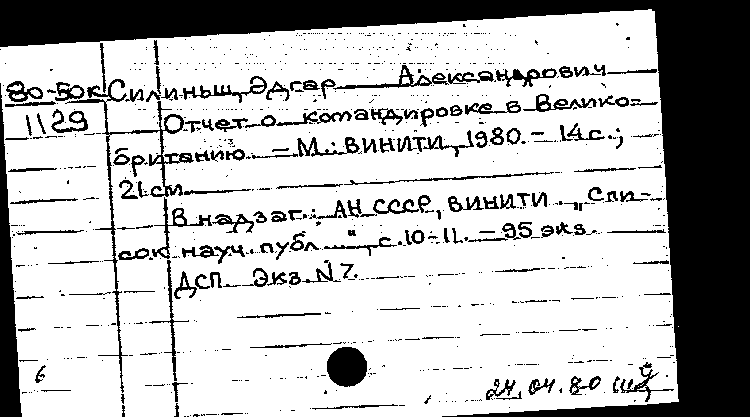 80-50к Силиньш, Эдгар Александрович
1129 Отчет о командировке в Велико-
британию. – М.: ВИНИТИ, 1980. – 14 с.;
21 см.
В надзаг.: АН СССР, ВИНИТИ. „Спи-
сок науч. публ...", с. 10-11. – 95 экз.
ДСП. Экз. N 7.
6
24.04.80